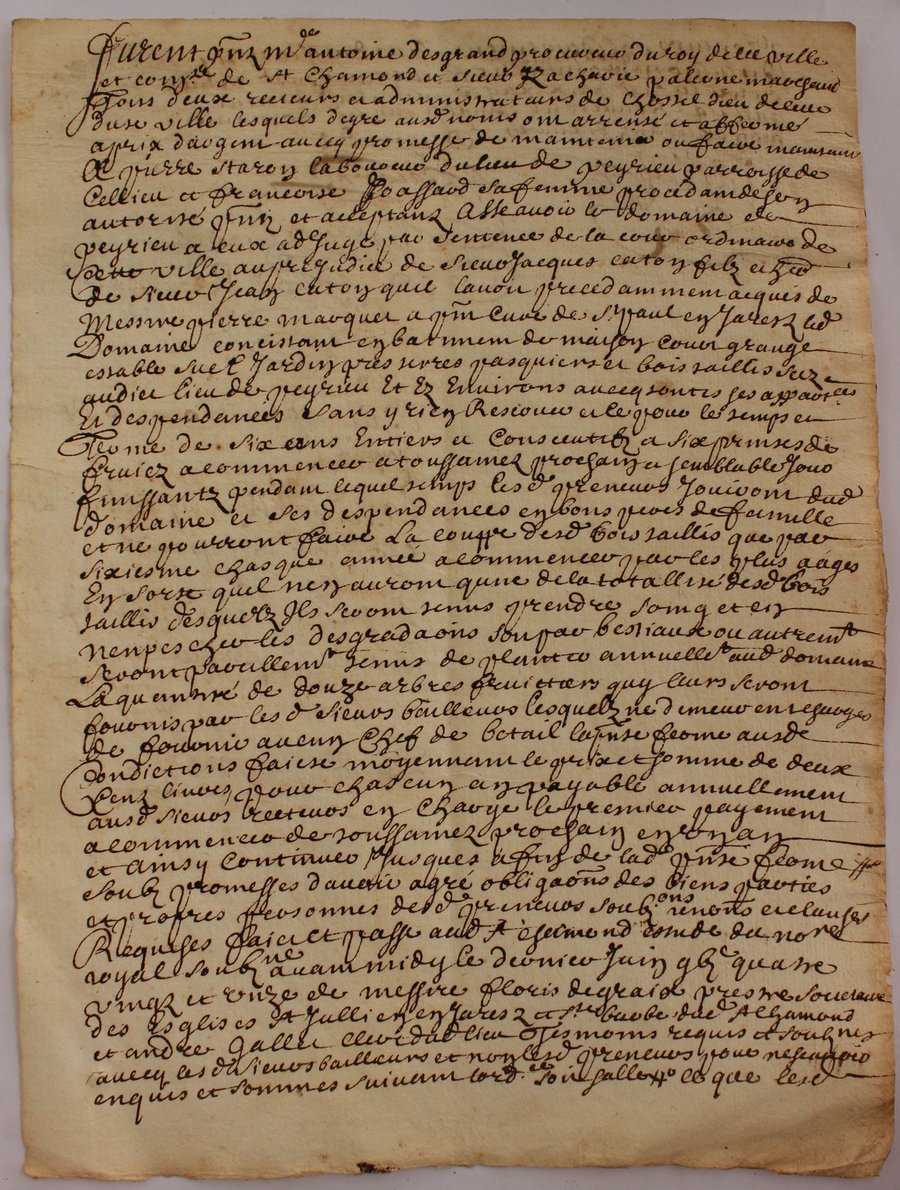 Furent pnz me antoine desgrand procureur du roy de lad ville
et conté de St Chamond et sieur Zacharie palerne marchand
Tous deux recteurs et administrateurs de lhostel dieu de lad
ville lesquels degre ausd noms ont arrensé et affermé
a prix dargent avecq promesse de maintenir ou faire maintenir
A pierre staron laboureur du lieu de peyrieu parroisse de
Cellieu et françoise sa femme procedant de son
autorité pnz et acceptanz Asseavoir le domaine de
peyrieu a eux adjugé par sentence de la cour ordinaire de
ville au prejudice de sieur Jacques caton filz et
de sieur Jean caton quil lavoit precedamment acquis de
Messire pierre marquet a pnt curé de St paul en Jarest led
Domaine concistant en batiment de maison cour grange
estable Jardin prés terres pasquiers et bois taillis
audict lieu de peyrieu Et Ez Environs avecq toutes ses
Et despendances sans y rien Reserver et ce pour le temps et
Terme de six ans Entiers et Consecutifz a six prinses de
fruicz a commencer a toussainct prochain et semblable Jour
finissantz pendant lequel temps lesd preneurs Jouiront dud
domaine et ses despendances en bons peres de famille
et ne pourront faire La couppe desd bois taillis que par
sixiesme chasque année a commencer par les plus aagés
En sorte quil nen auront quune de la totallité desd bois
taillis desquelz Ils seront tenus prendre soing et en
les desgradaons soit par bestiaux ou autremt
seront pareillemt tenus de planter annuellet aud domaine
La quantité de douze arbres fruittiers quy leurs seront
fournis par lesd sieurs bailleurs lesquelz ne demeurent chargés
de fournir aucun Chef de betail la pnte ferme ausd
Condictions faicte moyennant le prix et somme de deux
Cenz livres pour chascun an payable annuellement
ausd sieurs recteurs en charge le premier payement
a commencer de toussainct prochain en un an
et ainsy continuer Jusques a fin de lad pnte ferme
Soubz promesses davoir agré obligaons des biens parties
et propres personnes desd preneurs soubz renons et clauses
Requises faict et passé aud St chamond Estude du nore
royal soubzne avant midy le dernier Juin gbc quatre
vingz et unze de messire floris degraix prestre societaire
des Esglises St Jullien en Jarez et ste barbe dud St Chamond
et andré gallet clerc dud lieu Tesmoins requis et soubznes
avecq lesd sieurs bailleurs et non lesd preneurs pour ne scavoir
enquis et sommés suivant lordce gallet ce que lesd